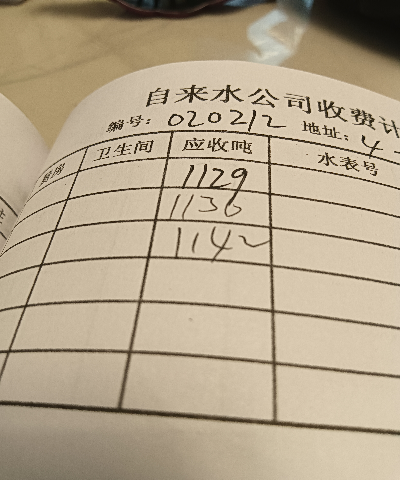 自来水公司收费计
编号: 020212 地址: 4
厨房 卫生间 应收吨 水表号
1129
1136
1142